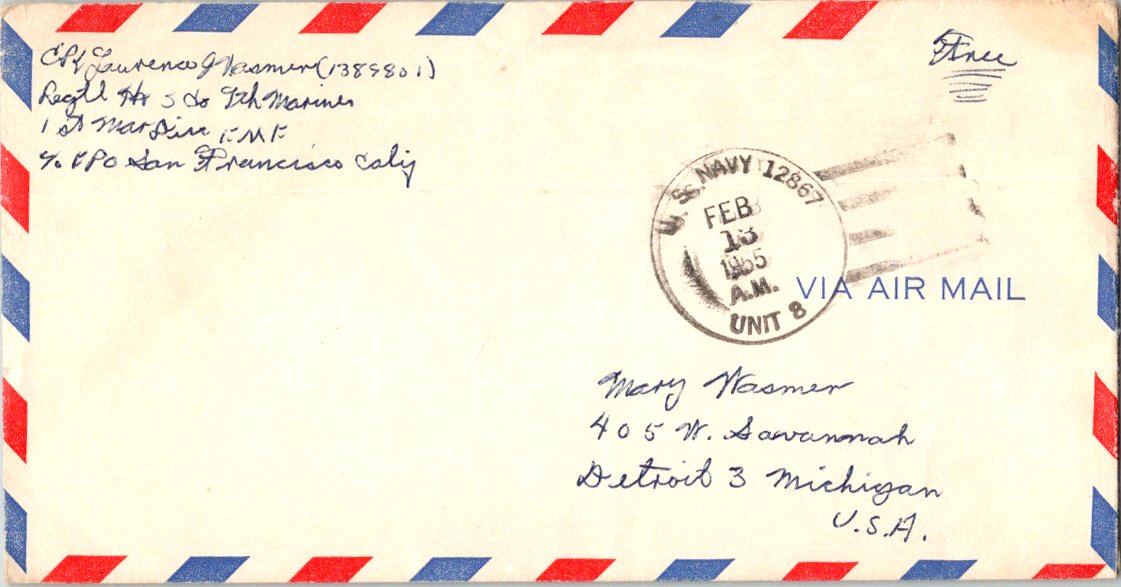 Cpl Laurence J Wasmer (1389801)
Regtl Hq S Co 7th Marines
1st Mar Div F M F
c/o FPO San Francisco Calif
Free
U.S. NAVY 12867
FEB
13
1955
A.M.
UNIT 8
VIA AIR MAIL
Mary Wasmer
405 W. Savannah
Detroit 3 Michigan
U.S.A.